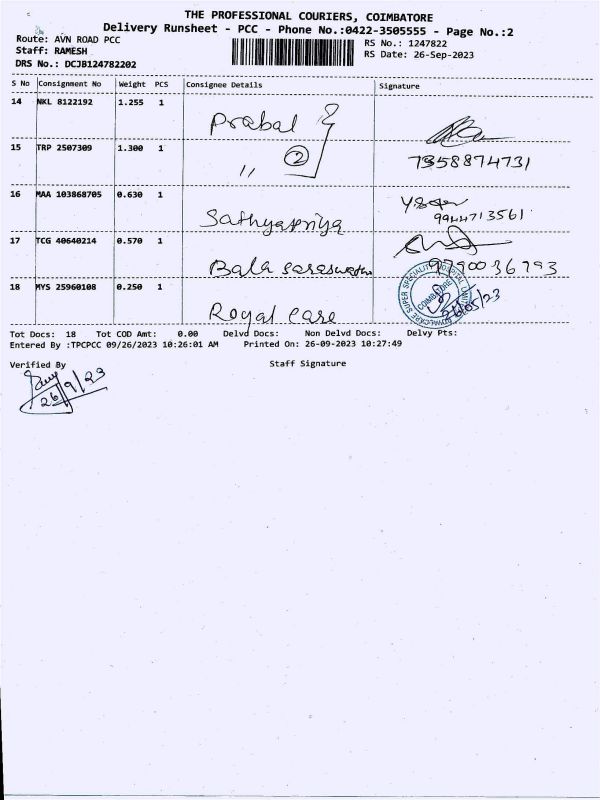 THE PROFESSIONAL COURIERS, COIMBATORE
Delivery Runsheet - PCC - Phone No.:0422-3505555 - Page No.:2
Route: AVN ROAD PCC
RS No.: 1247822
Staff: RAMESH
RS Date: 26-Sep-2023
DRS No.: DCJB124782202
S No Consignment No Weight PCS Consignee Details Signature
14 NKL 8122192 1.255 1 Prabal
15 TRP 2507309 1.300 1 ,, 2 7358874731
16 MAA 103868705 0.630 1 Sathyapriya 9944713561
17 TCG 40640214 0.570 1 Bala saraswathi 9790036793
18 MYS 25960108 0.250 1 Royal Care
Tot Docs: 18 Tot COD Amt: 0.00 Delvd Docs: Non Delvd Docs: Delvy Pts:
Entered By :TPCPCC 09/26/2023 10:26:01 AM Printed On: 26-09-2023 10:27:49
Verified By Staff Signature
26/9/23